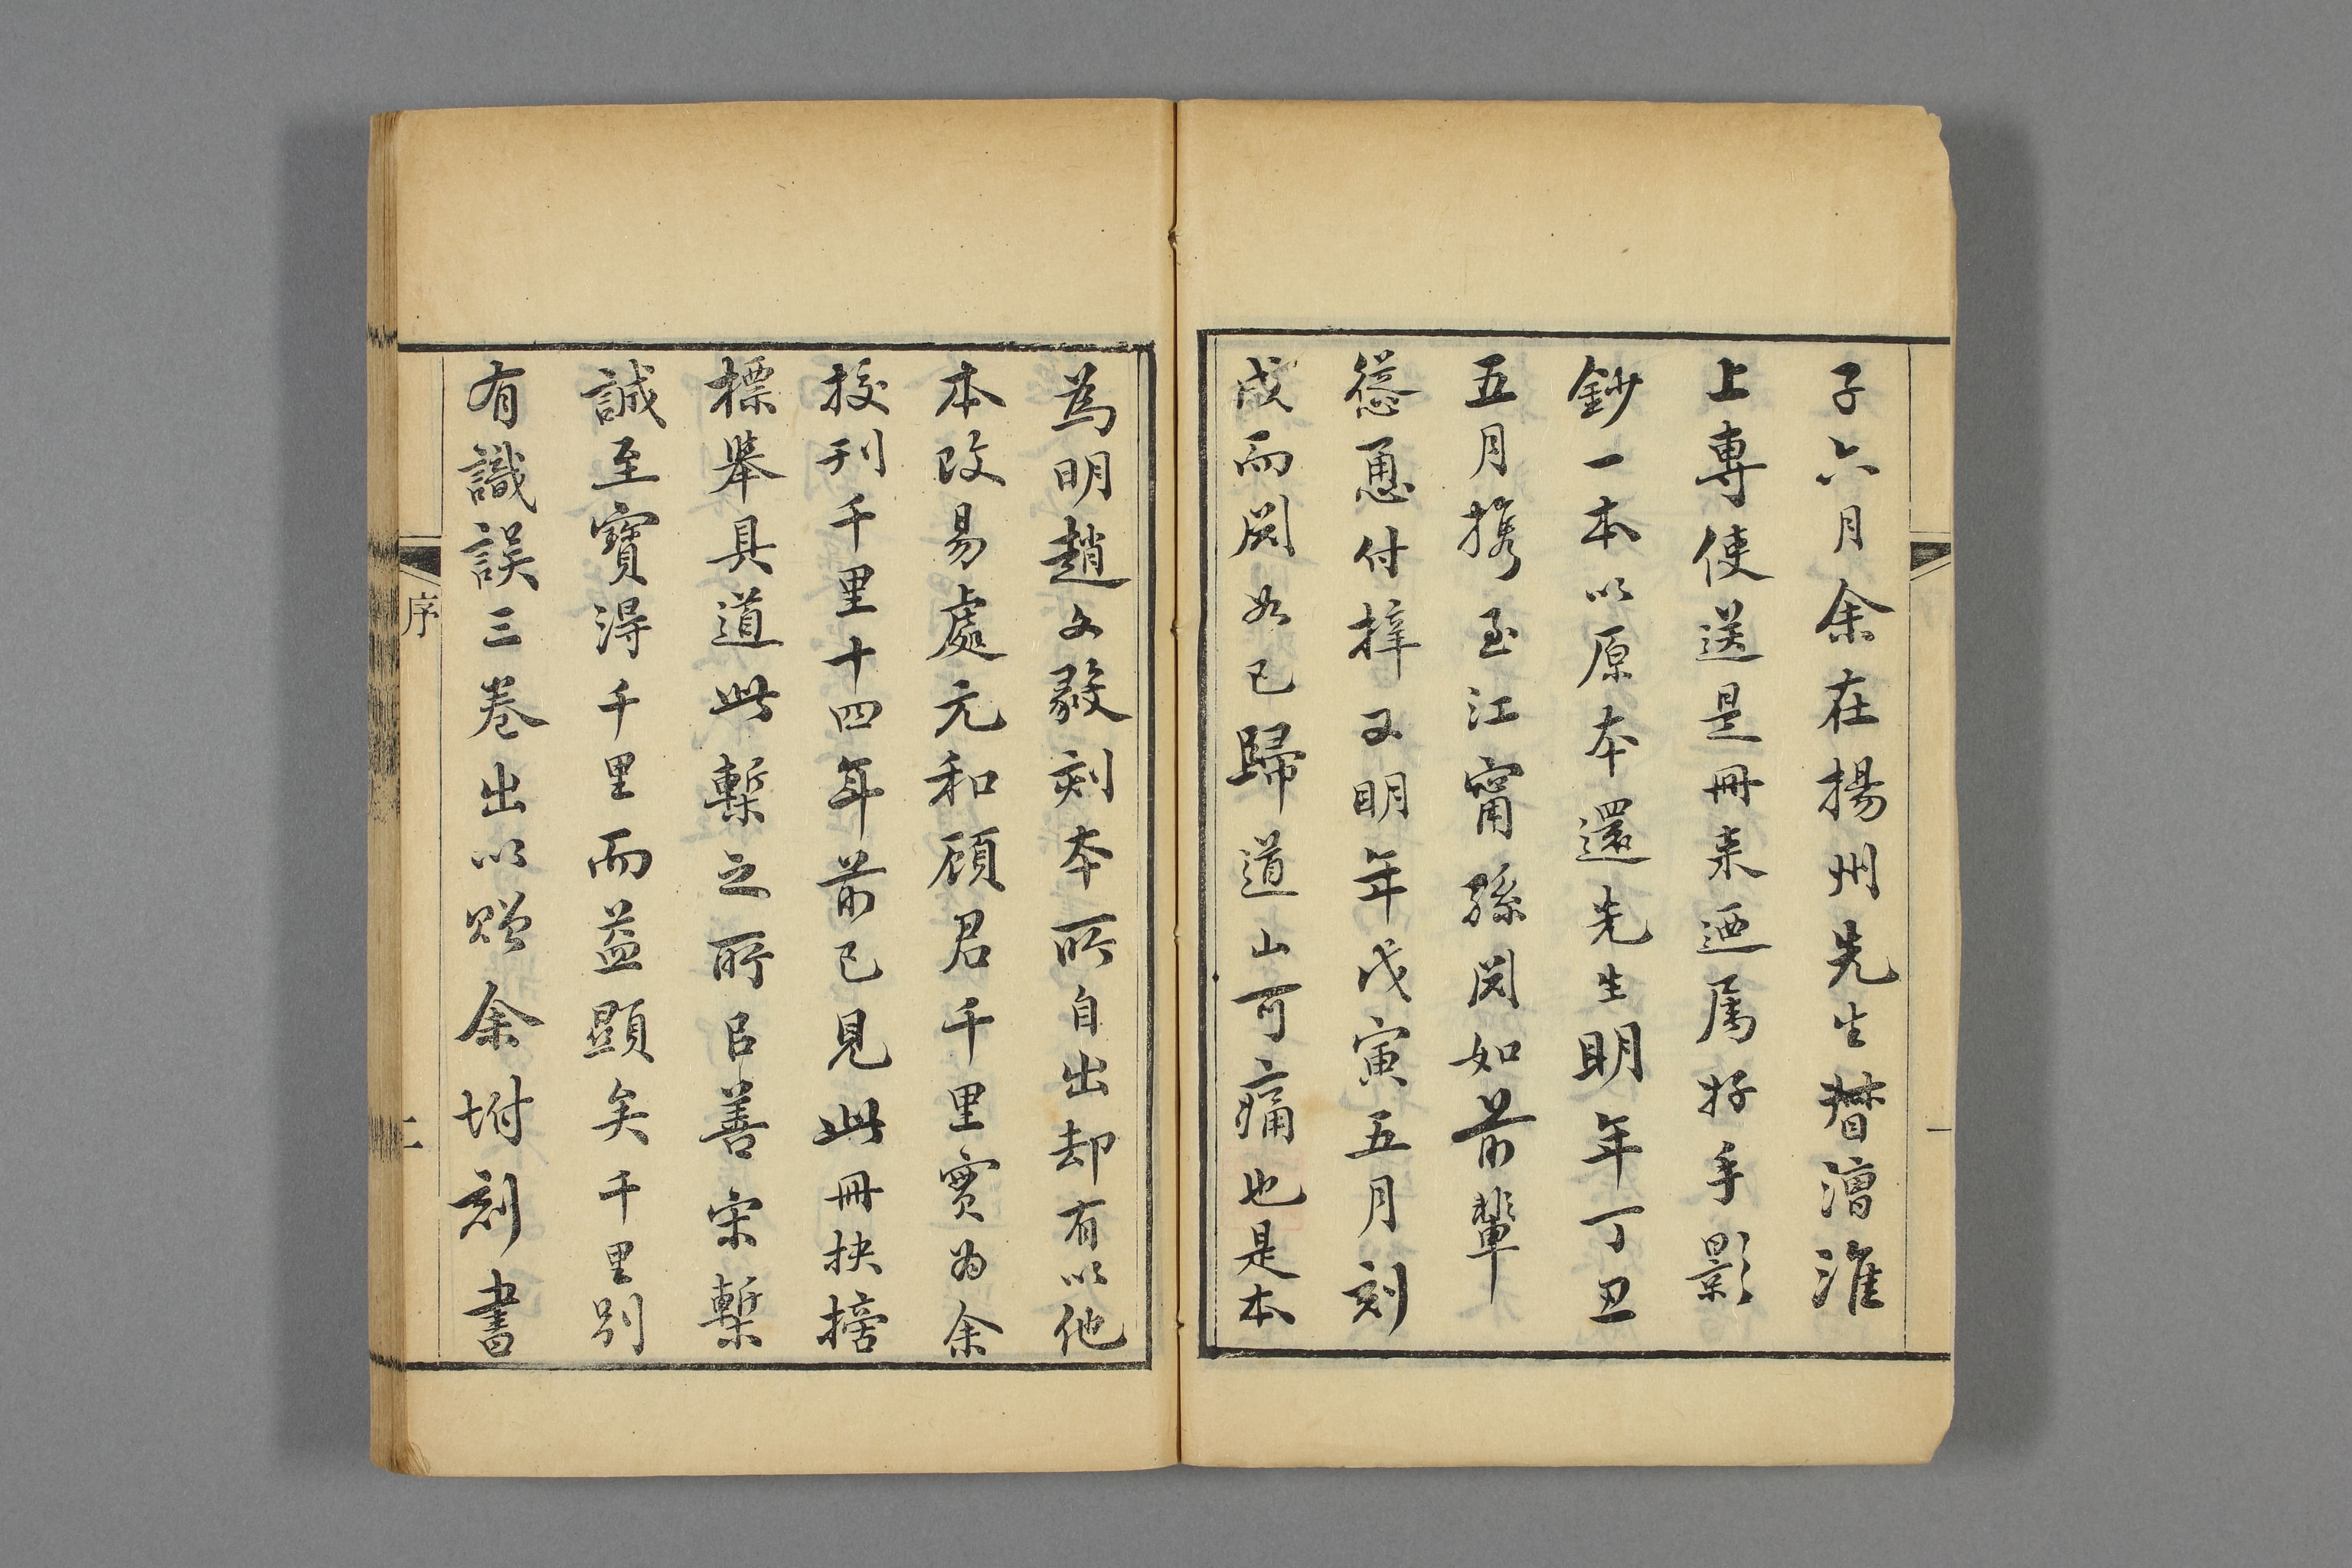 子六月余在揚州先生督漕淮
上專使送是冊来迺属好手影
鈔一本以原本還先生明年丁丑
五月攜至江甯孫淵如前輩
慫恿付梓又明年戊寅五月刻
成而淵如已歸道山可痛也是本
爲明趙文毅刻本所自出却有以他
本改易處元和顧君千里實为余
挍刊千里十四年前已見此冊抉擿
標舉具道此槧之所㠯善宋槧
誠至寶得千里而益顯矣千里別
有識誤三卷出以贈余坿刻書
序
二